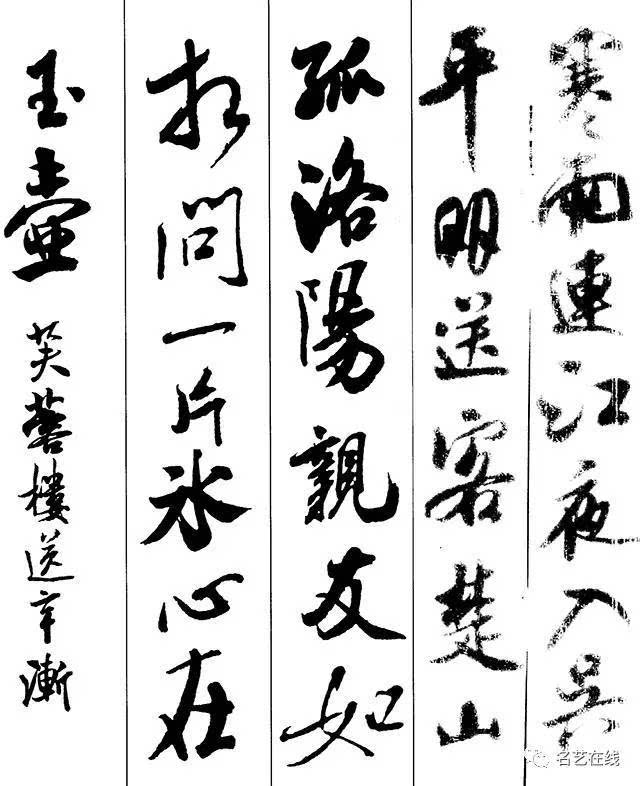 寒雨連江夜入吴
平明送客楚山
孤洛陽親友如
相問一片冰心在
玉壺
芙蓉樓送辛漸
名艺在线